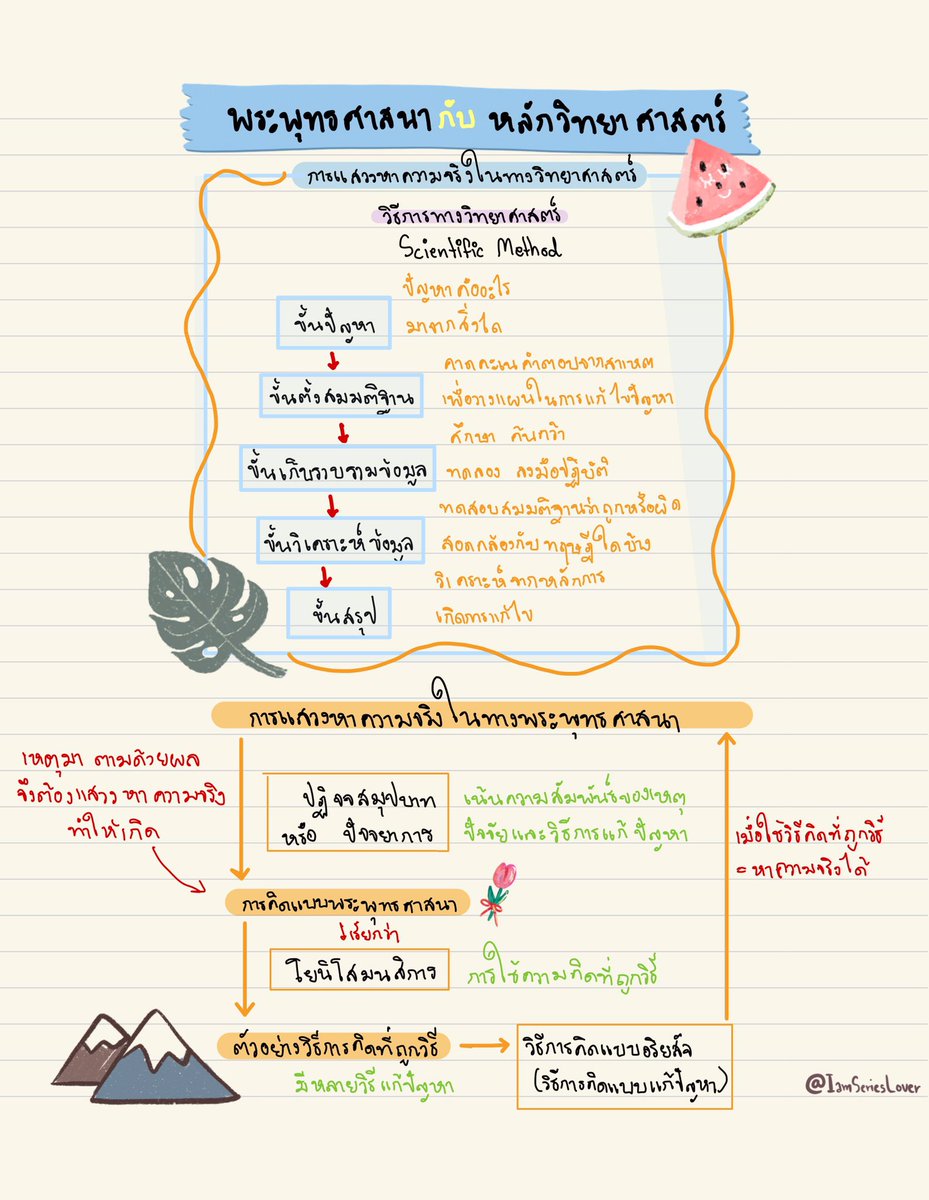 พระพุทธศาสนากับ หลักวิทยาศาสตร์
การแสวงหาความจริงในทางวิทยาศาสตร์
วิธีการทางวิทยาศาสตร์
Scientific Method
ปัญหาคืออะไร
ขั้นปัญหา มาจากสิ่งใด
คาดคะเนคำตอบจากสาเหตุ
ขั้นตั้งสมมติฐาน เพื่อวางแผนในการแก้ไขปัญหา
ศึกษา ค้นคว้า
ขั้นเก็บรวบรวมข้อมูล ทดลอง ลงมือปฏิบัติ
ทดสอบสมมติฐานว่าถูกหรือผิด
ขั้นวิเคราะห์ข้อมูล สอดคล้องกับทฤษฎีใดบ้าง
วิเคราะห์จากหลักการ
ขั้นสรุป เกิดการแก้ไข
การแสวงหาความจริงในทางพระพุทธศาสนา
เหตุมา ตามด้วยผล
จึงต้องแสวงหาความจริง
ทำให้เกิด
ปฏิจจสมุปบาท
หรือ ปัจจยาการ
เน้นความสัมพันธ์ของเหตุ
ปัจจัยและวิธีการแก้ปัญหา
เมื่อใช้วิธีคิดที่ถูกวิธี
= หาความจริงได้
การคิดแบบพระพุทธศาสนา
เรียกว่า
โยนิโสมนสิการ
การใช้ความคิดที่ถูกวิธี
ตัวอย่างวิธีการคิดที่ถูกวิธี
มีหลายวิธีแก้ปัญหา
วิธีการคิดแบบอริยสัจ
(วิธีการคิดแบบแก้ปัญหา)
@IamSeriesLover